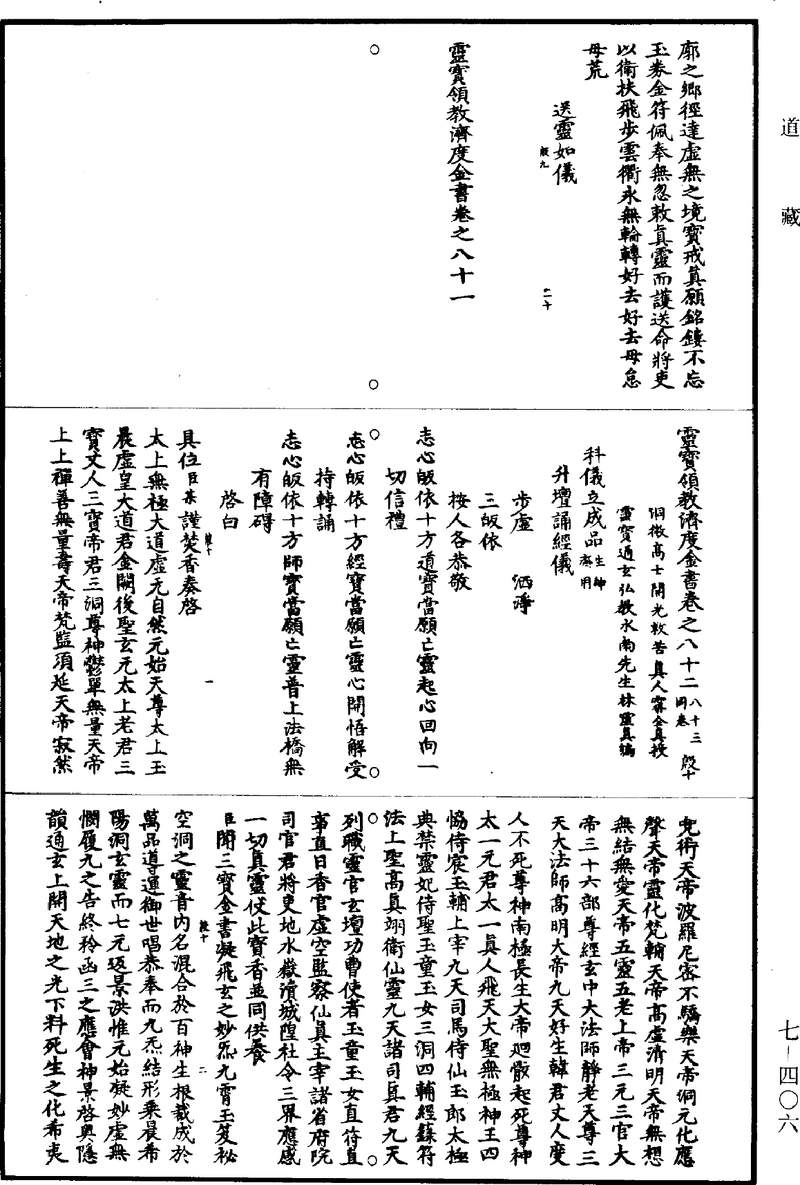 道藏
七-四〇六
廓之鄉徑達虛無之境寶戒真願銘鏤不忘
玉券金符佩奉無忽敕真靈而護送命將吏
以衛扶飛步雲衢永無輪轉好去好去毋怠
毋荒
送靈如儀
殷九
二十
靈寶領教濟度金書卷之八十一
靈寶領教濟度金書卷之八十二
八十三同卷
殷十
洞微高士開光救苦真人甯全真授
靈寶通玄弘教水南先生林靈真編
科儀立成品
生神齋用
升壇誦經儀
步虛
洒淨
三皈依
按人各恭敬
志心皈依十方道寶當願亡靈起心回向一
切信禮
志心皈依十方經寶當願亡靈心開悟解受
持轉誦
志心皈依十方師寶當願亡靈普上法橋無
有障碍
啓白
殷十
一
具位臣某謹焚香奏啓
太上無極大道虛无自然元始天尊太上玉
晨虛皇大道君金闕後聖玄元太上老君三
寶丈人三寶帝君三洞尊神鬱單無量天帝
上上禪善無量壽天帝梵監須延天帝寂然
兜術天帝波羅尼密不驕樂天帝洞元化應
聲天帝靈化梵輔天帝高虛清明天帝無想
無結無愛天帝五靈五老上帝三元三官大
帝三十六部尊經玄中大法師靜老天尊三
天大法師高明大帝九天好生韓君丈人度
人不死尊神南極長生大帝廻骸起死尊神
太一元君太一真人飛天大聖無極神王四
恊侍宸玉輔上宰九天司馬侍仙玉郎太極
典禁靈妃侍聖玉童玉女三洞四輔經籙符
法上聖高真翊衛仙靈九天諸司真君九天
列職靈官玄壇功曹使者玉童玉女直符直
事直日香官虛空監察仙真主宰諸省府院
司官君將吏地水嶽瀆城隍社令三界應感
一切真靈使此寶香並同供養
臣聞三寶金書凝飛玄之妙炁九霄玉笈祕
殷十
二
空洞之靈音內名混合於百神生根裁成於
萬品導運御世唱恭奉而九炁結形乘晨希
陽洞玄靈而七元返景洪惟元始凝妙虛無
憫履九之告終矜函三之應會神景啓奧隱
韻通玄上開天地之光下料死生之化希夷